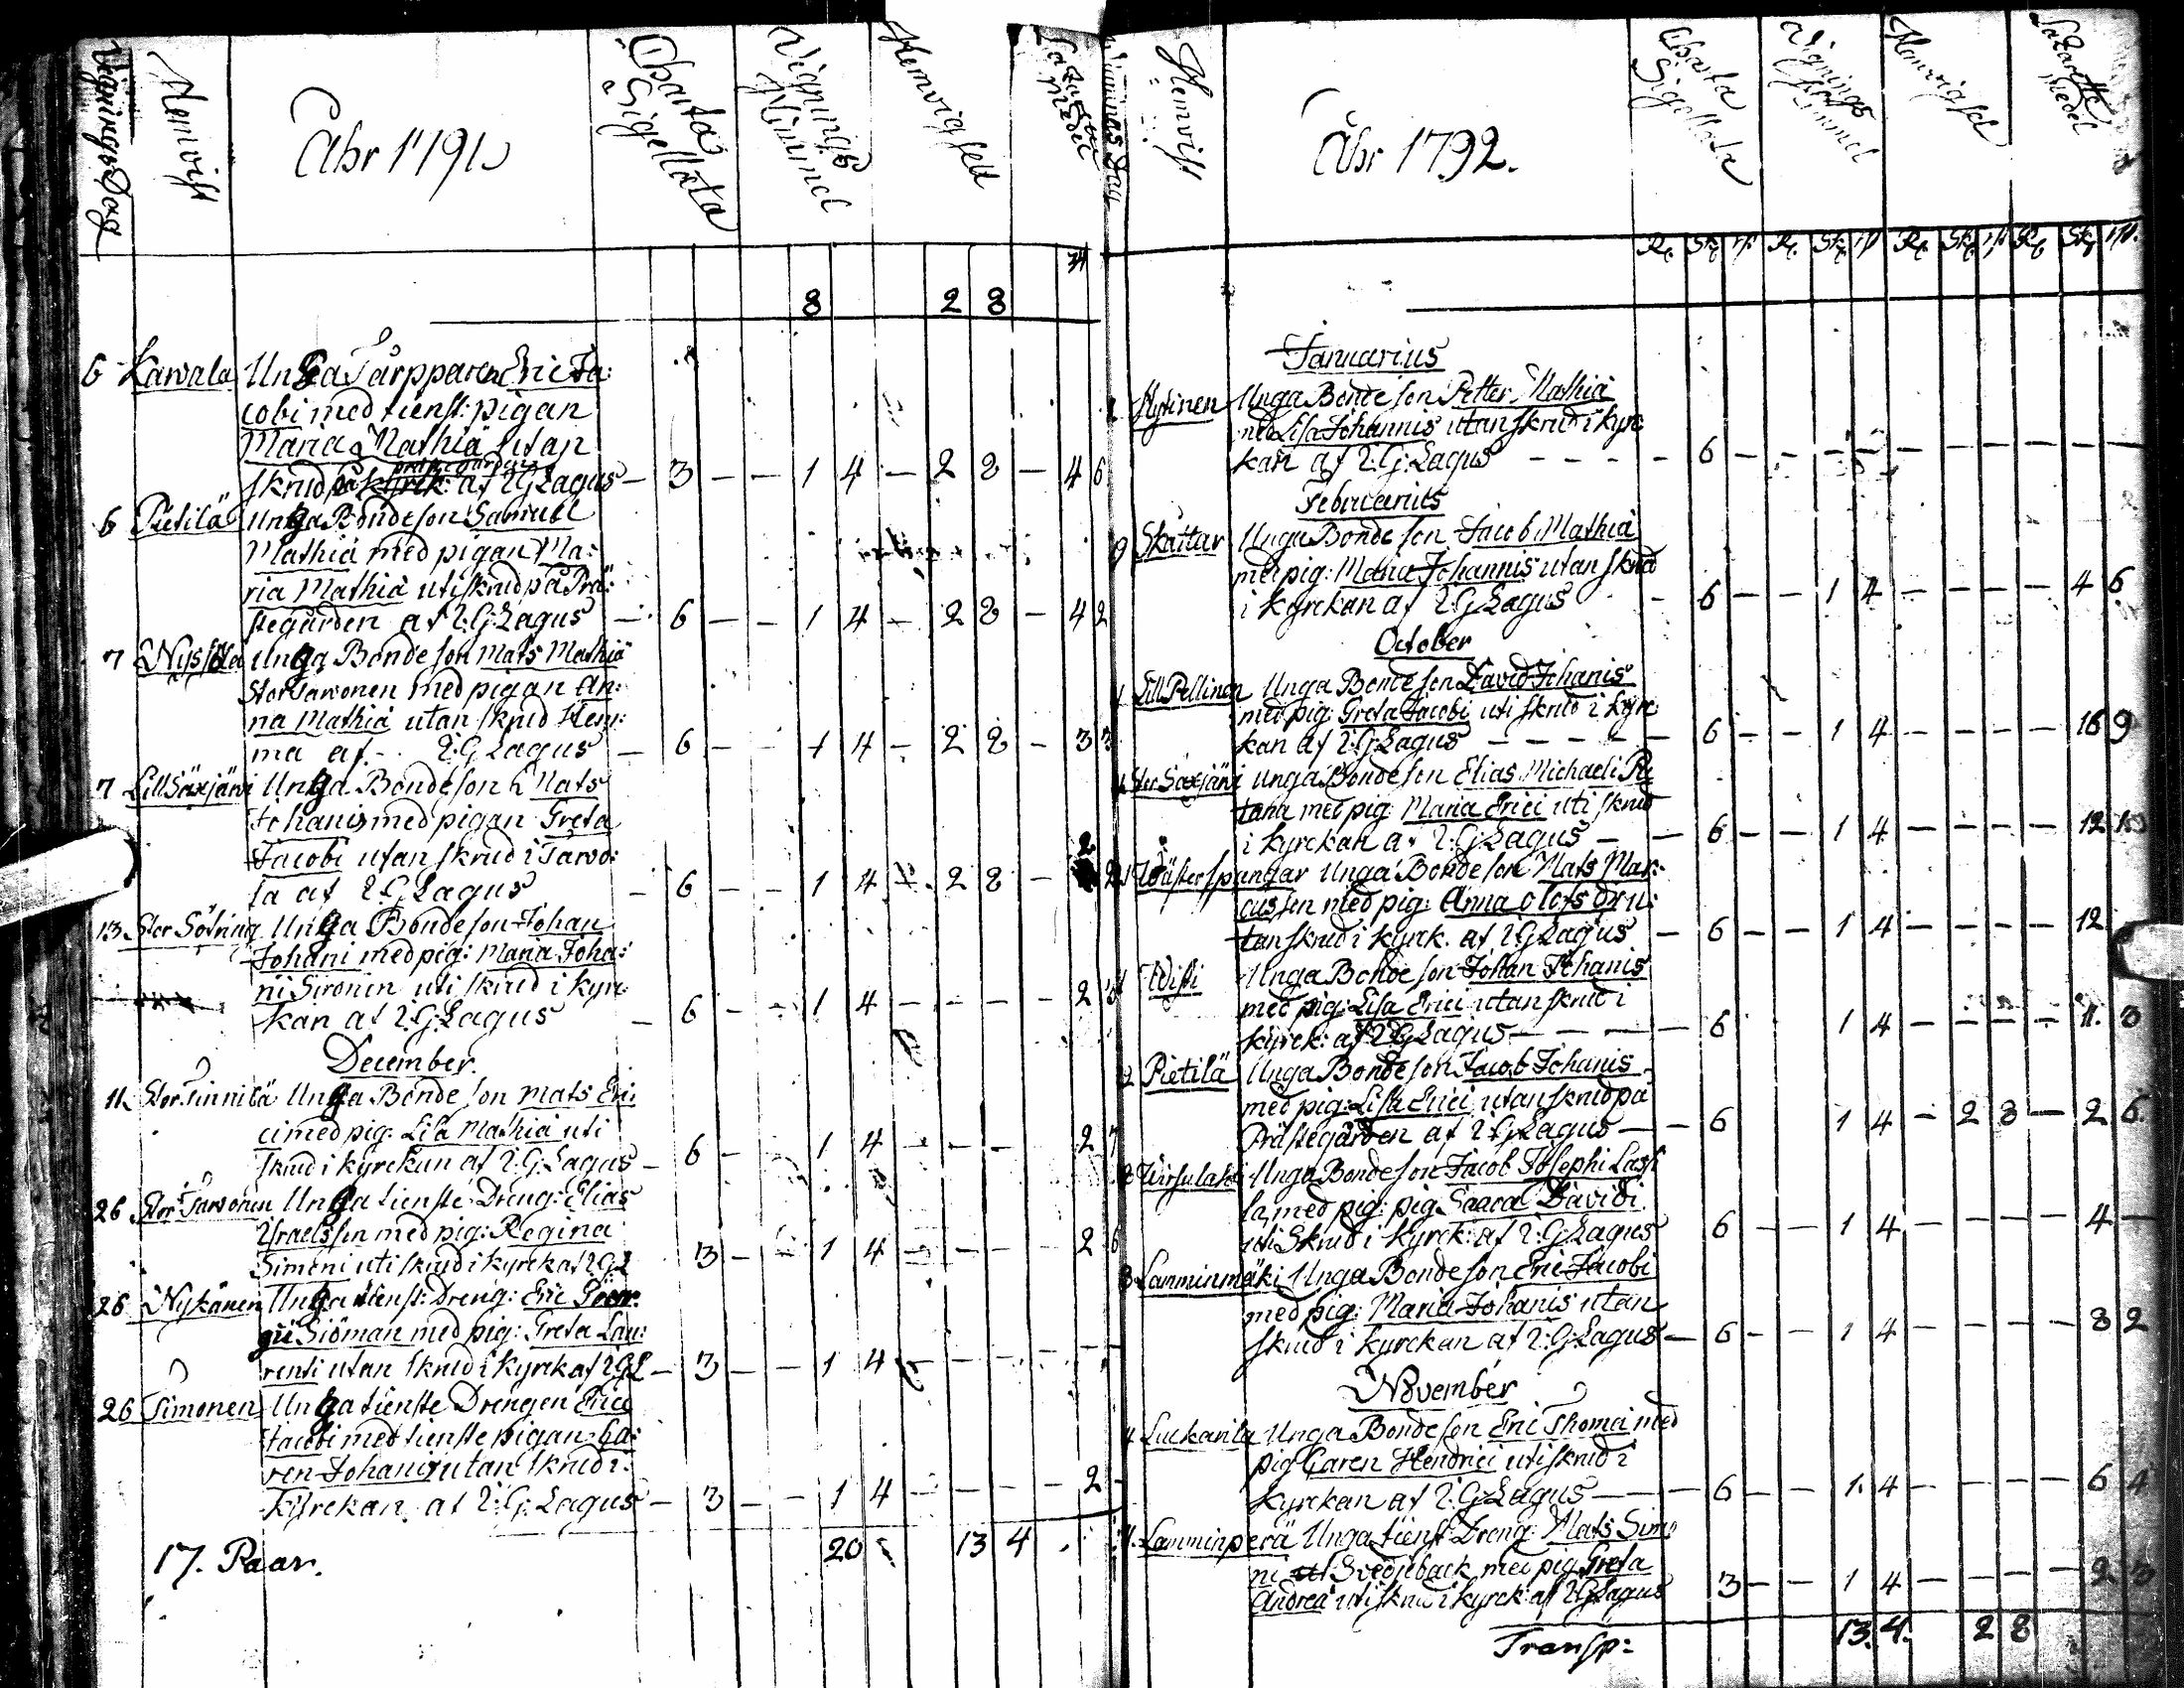 Vignings Dag Hemvist Åhr 1791. Charta Sigellata Vignings Himmel Hemvigsel Lazaretts Medel
8 2 8 34
6 Karvala Unga Tårpparen Eric Ja:
cobi med tienst: pigan
Maria Mathiä utan
skrud på af I:G:Lagus — 3 — — 1 4 — 2 8 — 4 6
6 Pietilä Unga Bondeson Samuel
Mathiä med pigan Ma:
ria Mathiä uti skrud på Prä:
stegården af I:G:Lagus — 6 — — 1 4 — 2 8 — 4 2
7 Nissola Unga Bondeson Mats Mathiä
Storsavonen med pigan An:
na Mathiä utan skrud Hem:
ma af I:G:Lagus — 6 — — 1 4 — 2 8 — 3 3
7 Lill Säxjärvi Unga Bondeson Mats
Johanis med pigan Greta
Jacobi utan skrud i Tarvo:
la af I:G:Lagus — 6 — — 1 4 — 2 8 — 2
13 Stor Sötring Unga Bondeson Johan
Johani med pig: Maria Joha:
ni Sironen uti skrud i kyre:
kan af I:G:Lagus — 6 — — 1 4 — — — — 2
December.
11. Stor Finnilä Unga Bonde son Mats Eri
ci med pig: Lisa Mathiä uti
skrud i kyrekan af I:G:Lagus — 6 — 1 4 — — — 2 7
26 Stor Tarvonen Unga tienste Dreng: Elias
Israelsson med pig: Regina
Simoni uti skrud i kyrek af IGL 3 — — 1 4 — — — — 2 6
26 Nykänen Unga tienst: Dreng: Eric Geor:
gii Siöman med pig: Greta Lau:
renti utan skrud i kyrek af IGL — 3 — — 1 4 — — — —
26 Timonen Unga tienste Drengen Eric
Jacobi med tienste pigan Ca:
ren Johanis utan skrud i
kyrekan af I:G:Lagus — 3 — — 1 4 — — — — 2 —
17. Paar. 20 13 4
Vignings Dag Hemvist Åhr 1792. Charta Sigellata Vignings Himmel Hemvigsel Lazaretts Medel
R: Sk: rst R: Sk: rst R: Sk: rst R: Sk: rst.
Januarius
Hytinen Unga Bonde son Petter Mathiä
med Lisa Johannis utan skrud i kyre
kan af I:G:Lagus — — — — 6 — — — — — — — — —
Februarius
9 Skattar Unga Bonde son Jacob Mathiä
med pig: Maria Johannis utan skrud
i kyrekan af I:G:Lagus — 6 — — 1 4 — — — — 4 6
October
Lill Pellinen Unga Bonde son David Johanis
med pig: Greta Jacobi uti skrud i kyre
kan af I:G:Lagus — — — — 6 — — 1 4 — — — — 16 9
Stor Saxjärvi Unga Bonde son Elias Michaeli
med pig: Maria Erici uti skrud
i kyrckan af I:G:Lagus — — 6 — — 1 4 — — — — 12
Wästerspangar Unga Bonde son Mats Mar:
cusson med pig: Anna Olofs dr u:
tan skrud i kyrek. af I:G:Lagus — 6 — — 1 4 — — — — 12
Wisti Unga Bonde son Johan Johanis
med pig: Lisa Erici utan skrud i
kyrek: af I:G:Lagus — — — — 6 1 4 — — — — 11. 3
2 Pietilä Unga Bonde son Jacob Johanis
med pig: Lisa Erici utan skrud på
Prästegården af I:G:Lagus — — 6 1 4 — 2 8 — 2 6.
Unga Bonde son Jacob Josephi Lassi
la, med pig: pig Saara Davidi
uti Skrud i kyrck: af I:G:Lagus 6 — — 1 4 — — — — 4 —
3 Lamminmäki Unga Bonde son Eric Jacobi
med pig: Maria Johanis utan
skrud i kyrckan af I:G:Lagus — 6 — — 1 4 — — — — 8 2
November
4 Luckarila Unga Bonde son Eric Thomæ med
pig Caren Hendrici uti skrud i
kyrckan af I:G:Lagus — — — 6 — — 1. 4 — — — — 6 4
4. Lamminperä Unga tienst Dreng: Mats Simo
ni Svedjeback med pig: Greta
Andreæ uti skrud i kyrck: af I:G:Lagus 3 — — 1 4 — — — — 2. 3
Transp: 13. 4. 2 8